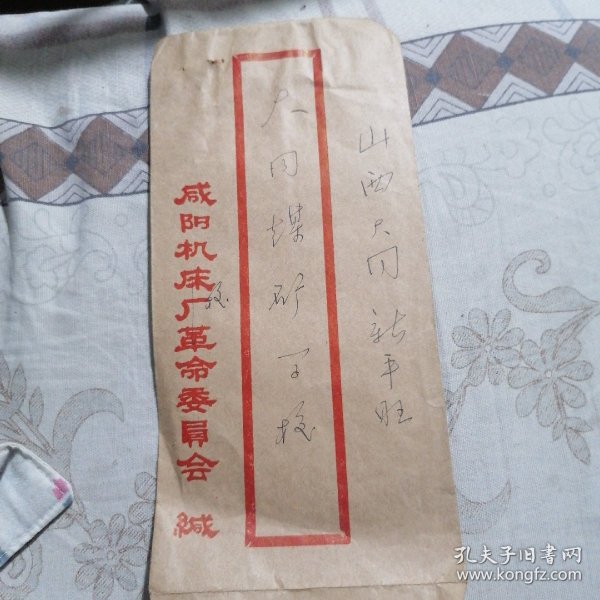 山西大同新平旺
大同煤矿学校
校
咸阳机床厂革命委员会 缄
孔夫子旧书网
www.kongfz.com